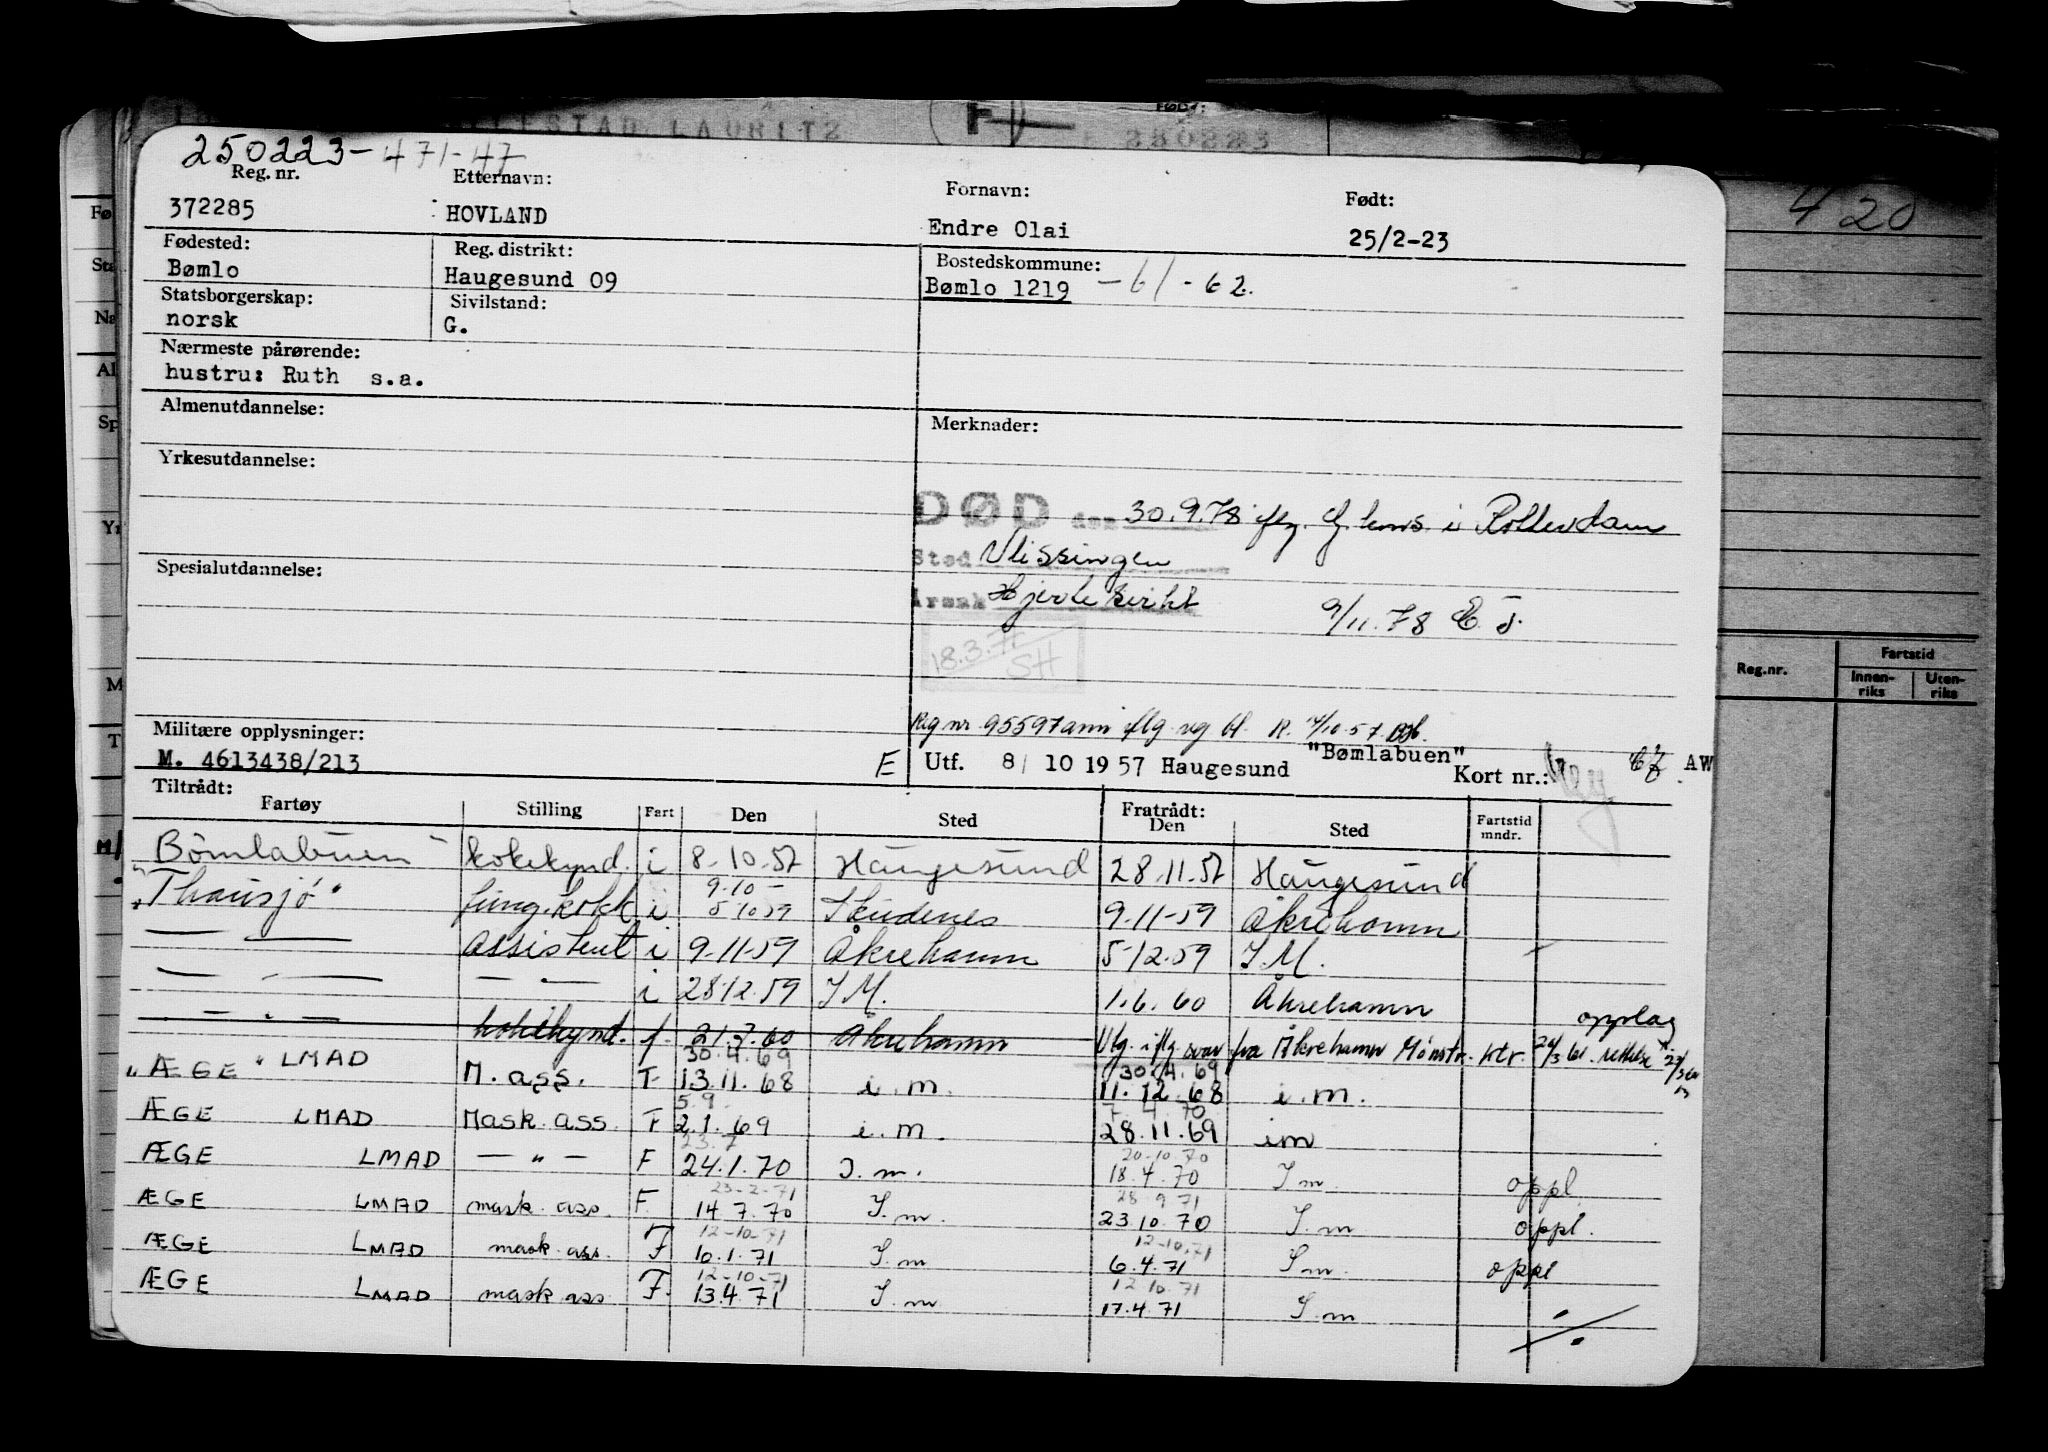 LAURITZ
F
280223
420
250223-471-47
Reg. nr. Etternavn: Fornavn: Født:
372285 HOVLAND Endre Olai 25/2-23
Fødested: Reg. distrikt: Bostedskommune:
Bømlo Haugesund 09 Bømlo 1219 -61-62.
Statsborgerskap: Sivilstand:
norsk G.
Nærmeste pårørende:
hustru: Ruth s.a.
Almenutdannelse: Merknader:
Yrkesutdannelse:
DØD den 30.9.78 flg. g. kons. i Rotterdam
Sted Vlissingen
Spesialutdannelse:
Årsak Hjertesvikt 9/11.78 E.J.
18.3.71
SH
Reg.nr. Fartstid
Innen-riks Uten-riks
Reg nr 95597 ann flg. reg bl. R. 14/10-57
Militære opplysninger:
M. 4613438/213 E Utf. 8/ 10 1957 Haugesund "Bømlabuen" Kort nr.: AW
Tiltrådt: Fratrådt:
Fartøy Stilling Fart Den Sted Den Sted Fartstid mndr.
Bömlabuen kokekynd. i 8.10.57 Haugesund 28.11.57 Haugesund
"Thausjö" fung. kokk i 9.10- 5.10.59 Skudenes 9.11-59 Åkrehamn
— — assistent i 9.11.59 Åkrehamn 5.12.59 I.M.
— " — — " — i 28.12.59 I M. 1.6.60 Åkrehamn
— " — kokekynd. f. 21.7.60 Åkrehamn Utg. iflg. svar fra Åkrehamn Mønstr. ktr. rettelse opplag
30.4.69 30.4.69
"ÆGE" LMAD M. ass. F 13.11.68 i.m. 11.12.68 i.m.
5.9. 7.4.70
ÆGE LMAD Mask. ass. F 2.1.69 i.m. 28.11.69 im
23.7 20-10.70
ÆGE LMAD — " — F 24.1.70 I.m. 18.4.70 I m oppl
23-2-71 28.9.71
ÆGE LMAD mask. ass. F. 14.7.70 I.m. 23.10.70 I.m oppl.
12-10-71 12-10.71
ÆGE LMAD mask. ass. F 10.1.71 I.m 6.4.71 I m. oppl
12-10-71 12.10.71
ÆGE LMAD mask ass F. 13.4.71 I.m 17.4.71 I.m